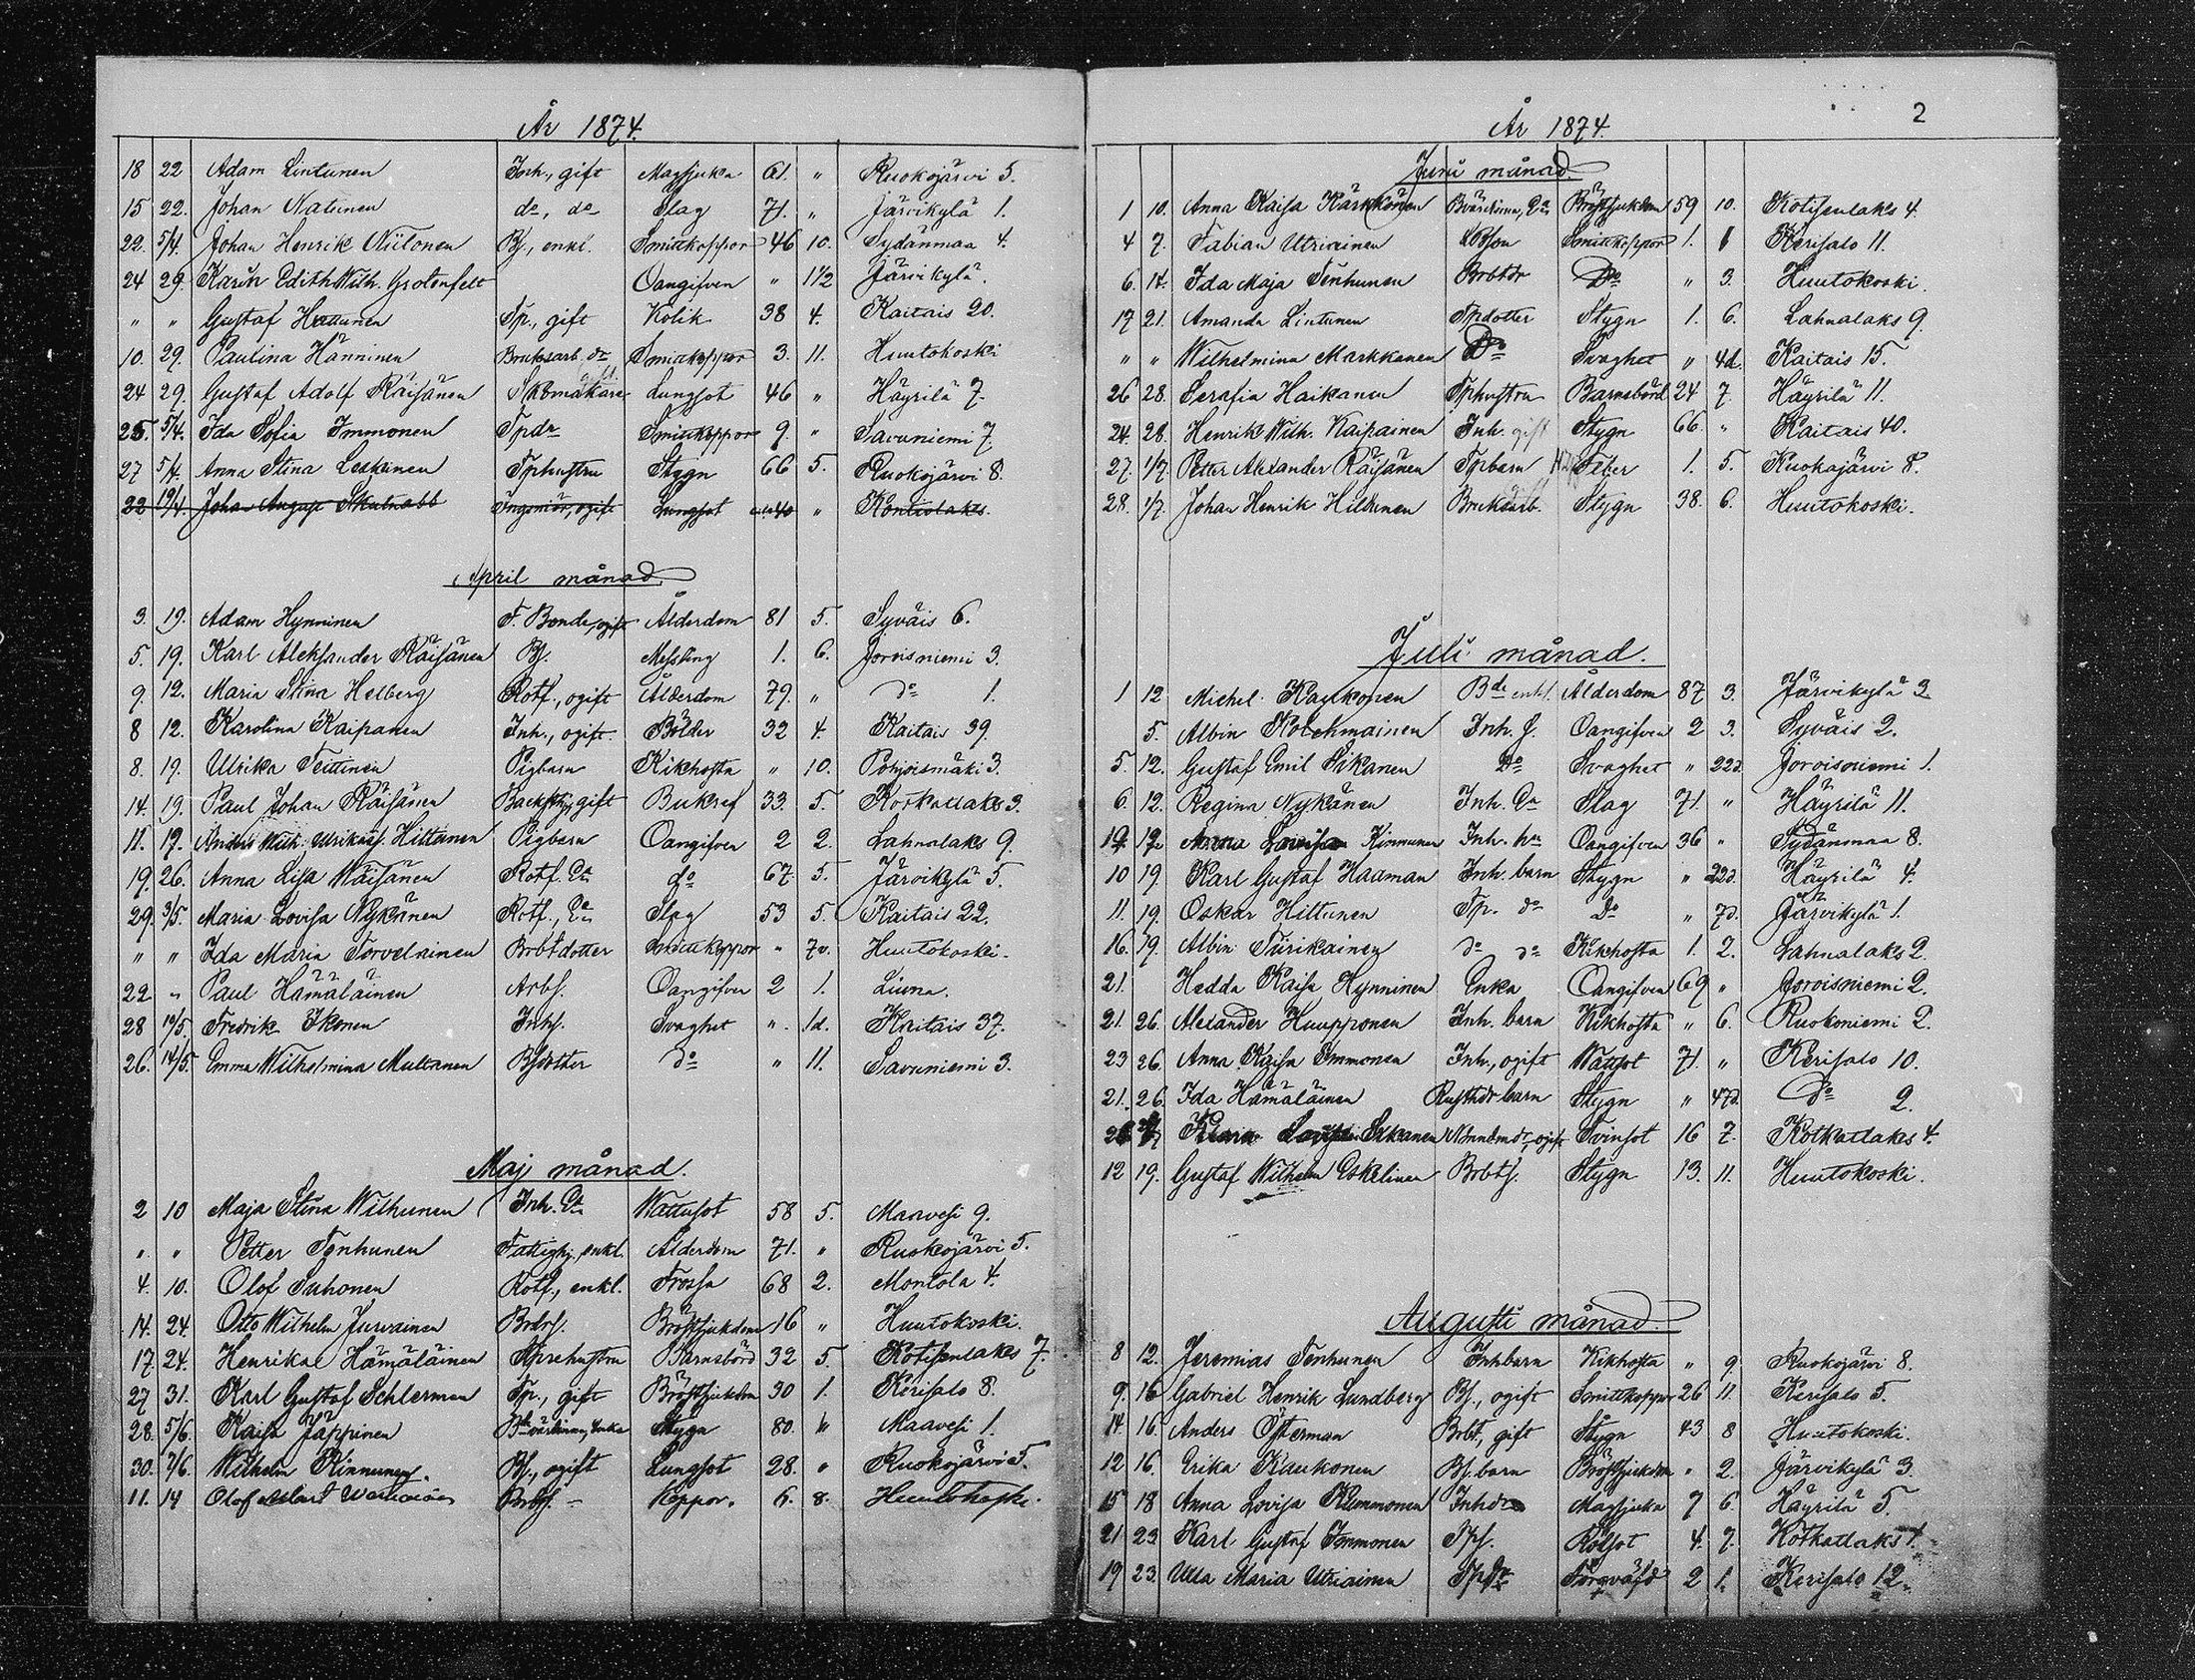 År 1874.
18 22 Adam Lintunen Inh., gift Magsjuka 61. " Ruokojärvi 5.
15 22. Johan Natunen do, do Slag 71. " Järvikylä 1.
22. 5/4. Johan Henrik Niilonen Bs., enkl. Smittkoppor 46 10. Sydänmaa 4.
24 29. Karin Edith Wilh. Grotenfelt Oangifven " 1 1/2 Järvikylä.
" " Gustaf Hattunen Tp., gift Kolik 38 4. Kaitais 20.
10. 29. Paulina Hänninen Bruksarb. dr Smittkoppor 3. 11. Huutokoski
24 29. Gustaf Adolf Räisänen Skomakare Lungsot 46 " Häyrilä 7.
25. 5/4. Ida Sofia Immonen Tpdr Smittkoppor 9. " Savuniemi 7.
27 5/4. Anna Stina Leskinen Tphustru Stygn 66 5. Ruokojärvi 8.
22 19/4. Johan August Skutnabb Ingeniör, ogift Lungsot 40 " Kontiolaks.
April månad
3. 19. Adam Hynninen F. Bonde, ogift Ålderdom 81 5. Syväis 6.
5. 19. Karl Aleksander Räisänen Bs. Messling 1. 6. Joroisniemi 3.
9. 12. Maria Stina Helberg Rotf., ogift Ålderdom 79. " do 1.
8 12. Karolina Kaipanen Inh., ogift. Bölder 32 4. Kaitais 39.
8. 19. Ulrika Teittinen Pigbarn Kikhosta " 10. Pohjoismäki 3.
14. 19. Paul Johan Räisänen Backsthj, gift Bukref 33. 5. Kotkatlaks 3.
11. 19. Anders Wilh. Ulrikass. Hiltunen Pigbarn Oangifven 2 2. Lahnalaks 9.
19. 26. Anna Lisa Wäisänen Rotf. Ea do 67. 5. Järvikylä 5.
29. 3/5. Maria Lovisa Nykänen Rotf., Ea Slag 53 5. Kaitais 22.
" " Ida Maria Torvelainen Brbtdotter Smittkoppor " 7v. Huutokoski.
22 " Paul Hämäläinen Arbs. Oangifven 2 1. Liuna.
28 10/5. Fredrik Ikonen Inhs. Svaghet " 1d. Kaitais 37.
26. 14/5. Emma Wilhelmina Multanen Bsdotter do " 11. Savuniemi 3.
Maj månad.
2 10 Maja Stina Wilhunen Inh. Ea Wattusot 58 5. Maavesi 9.
" " Petter Tenhunen Fattighj, enkl. Ålderdom 71. " Ruokojärvi 5.
4. 10. Olof Suhonen Rotf., enkl. Frossa 68 2. Montola 4.
14. 24. Otto Wilhelm Jurvainen Brbts. Bröstsjukdom 16 " Huutokoski.
17. 24. Henrika Hämäläinen Barnsbörd 32 5. Kotisenlaks 7.
27 31. Karl Gustaf Schlerman Tp., gift Bröstsjukdom 30 1. Kerisalo 8.
28. 5/6. Kaisa Jäppinen Stygn 80. " Maavesi 1.
30. 7/6. Wilhelm Kinnunen. Bs., ogift Lungsot 28. " Ruokojärvi 5.
11. 14 Olof Brbs. Koppor. 6. 8. Huutokoski.
2
År 1874.
Juni månad.
1 10. Anna Kaisa Kärkkönen Bröstsjukdom 59 10. Kotisenlaks 4.
4 7. Fabian Utriainen Smittkoppor 1. 1 Kerisalo 11.
6. 14. Ida Maja Tenhunen Brbtdr Do " 3. Huutokoski.
17 21. Amanda Lintunen Tpdotter Stygn 1. 6. Lahnalaks 9.
" " Wilhelmina Markkanen Do Svaghet " 4d. Kaitais 15.
26 28. Serafia Haikanen Tphustru Barnsbörd 24 7. Häyrilä 11.
24. 28. Henrik Wilh. Kaipainen Inh. gift Stygn 66. " Kaitais 40.
27. 1/7. Petter Alexander Räisänen Tpbarn Feber 1. 5. Ruokojärvi 8.
28. 1/7. Johan Henrik Hiltunen Bruksarb. Stygn 38. 6. Huutokoski.
Juli månad.
1 12 Michel Kaukonen Bde enkl. Ålderdom 87 3. Järvikylä 3
5. Albin Kolehmainen Inh. s. Oangifven 2 3. Syväis 2.
5. 12. Gustaf Emil Sikanen Do Svaghet " 22d. Joroisniemi 1.
6. 12. Regina Nykänen Inh. Ea Slag 71. " Häyrilä 11.
12 Anna Lovisa Kinnunen Inh. hu Oangifven 36 " Sydänmaa 8.
10 19. Karl Gustaf Haaman Inh. barn Stygn " 22d. Häyrilä 4.
11. 19. Oskar Hiltunen Tp. do Do " 7d. Järvikylä 1.
16. 19. Albin Tiirikainen do do Kikhosta 1. 2. Lahnalaks 2.
21. Hedda Kaisa Hynninen Enka Oangifven 69 " Joroisniemi 2.
21. 26. Alexander Huupponen Inh. barn Kikhosta " 6. Ruokoniemi 2.
23 26. Anna Kaisa Immonen Inh., ogift Wattsot 71. " Kerisalo 10.
21. 26. Ida Hämäläinen Rusthdr barn Stygn " 47d. Do 2.
Lovisa Sikanen Tvinsot 16 7. Kotkatlaks 4.
12 19. Gustaf Wilhelm Eskelinen Brbts. Stygn 13. 11. Huutokoski.
Augusti månad.
8 12. Jeremias Tenhunen Inhbarn Kikhosta " 9. Ruokojärvi 8.
9. 16 Gabriel Henrik Lundberg Bs., ogift Smittkoppor 26 11. Kerisalo 5.
14. 16. Anders Österman Brbt., gift Stygn 43 8 Huutokoski.
12 16. Erika Kaukonen Bs. barn Bröstsjukdom " 2. Järvikylä 3.
15 18 Anna Lovisa Kummonen Inhdr Magsjuka 7 6. Häyrilä 5.
21 23 Karl Gustaf Immonen Tps. Rötsot 4. 7. Kotkatlaks 4.
19 23. Ulla Maria Utriainen Tpdr 2 1. Kerisalo 12.